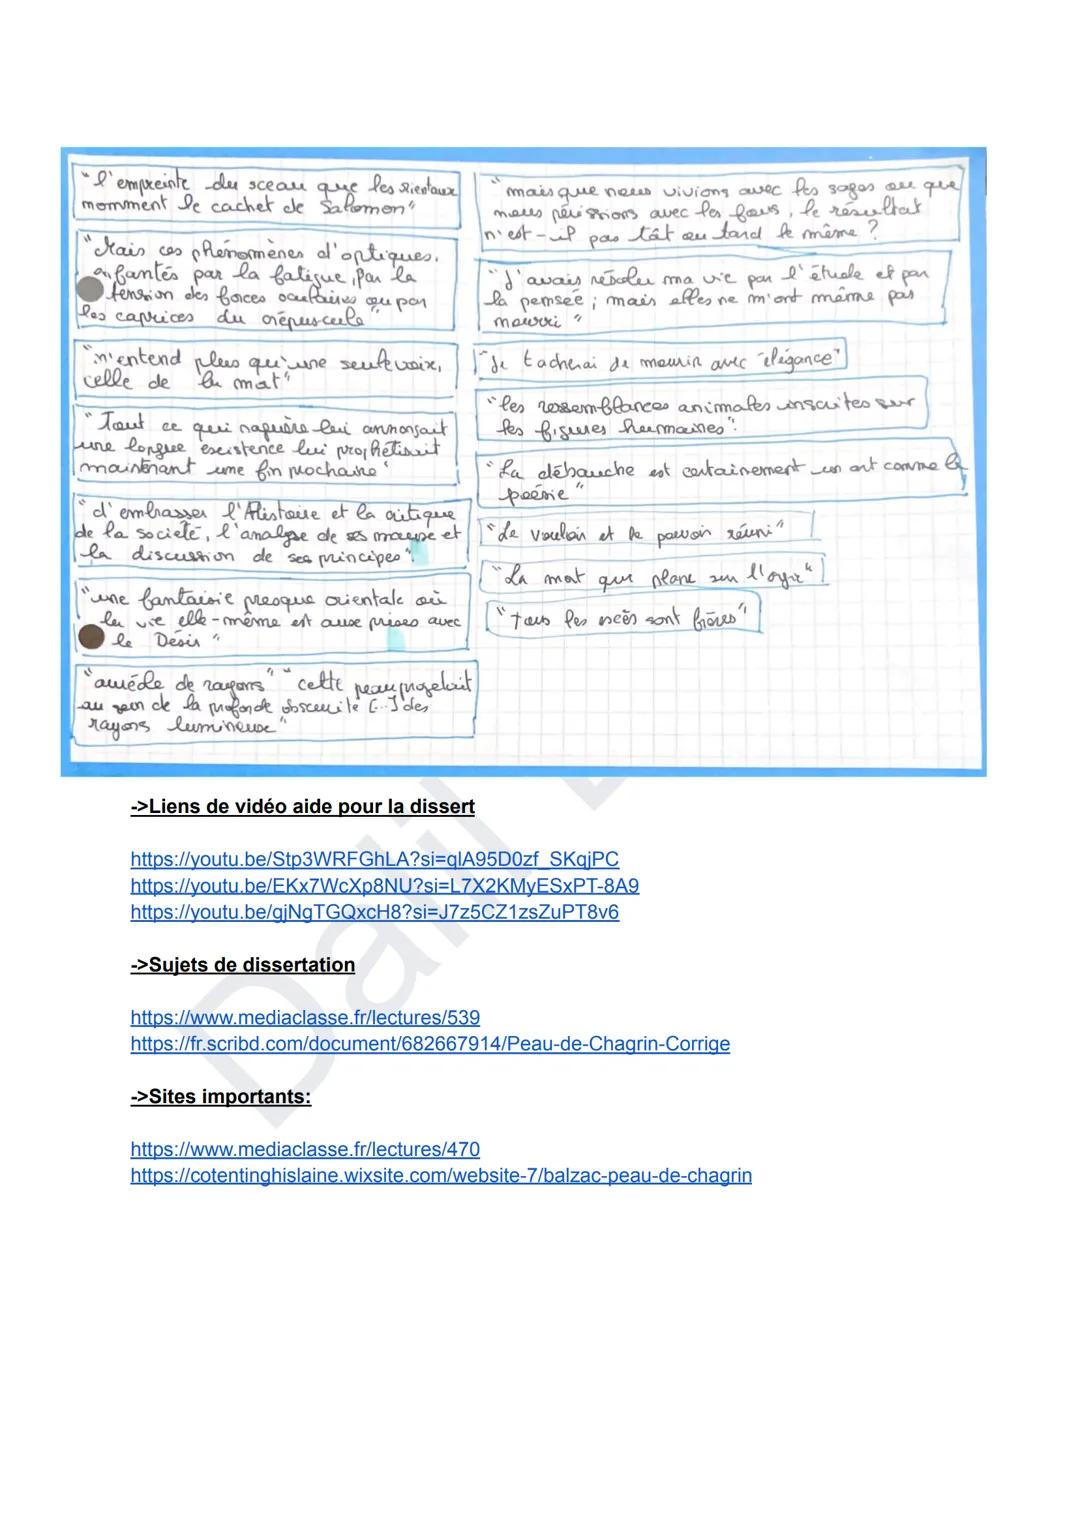 "l'empreinte du sceau que les orientaux
nomment le cachet de Salomon"
"Mais ces phénomènes d'optiques,
enfantés par la fatigue, par la
tension des forces oculaires ou par
les caprices du crépuscule"
"n'entend plus qu'une seule voix,
celle de la mort"
"Tout ce qui naguère lui annonçait
une longue existence lui prophétisait
maintenant une fin prochaine"
"d'embrasser l'Histoire et la critique
de la société, l'analyse de ses mœurs et
la discussion de ses principes".
"une fantaisie presque orientale où
la vie elle-même est aux prises avec
le Désir"
"auréole de rayons" "cette peau projetait
au sein de la profonde obscurité [...] des
rayons lumineux"
"mais que nous vivions avec les sages ou que
nous périssions avec les fous, le résultat
n'est-il pas tôt ou tard le même ?
"J'avais résolu ma vie par l'étude et par
la pensée ; mais elles ne m'ont même pas
nourri"
"Je tacherai de mourir avec élégance"
"les ressemblances animales inscrites sur
les figures humaines".
"La débauche est certainement un art comme la
poésie"
"Le vouloir et le pouvoir réuni"
"La mort qui plane sur l'orgie"
"tous les excès sont frères"
->Liens de vidéo aide pour la dissert
https://youtu.be/Stp3WRFGhLA?si=qlA95D0zf_SKqjPC
https://youtu.be/EKx7WcXp8NU?si=L7X2KMyESxPT-8A9
https://youtu.be/gjNgTGQxcH8?si=J7z5CZ1zsZuPT8v6
->Sujets de dissertation
https://www.mediaclasse.fr/lectures/539
https://fr.scribd.com/document/682667914/Peau-de-Chagrin-Corrige
->Sites importants:
https://www.mediaclasse.fr/lectures/470
https://cotentinghislaine.wixsite.com/website-7/balzac-peau-de-chagrin
Dalil